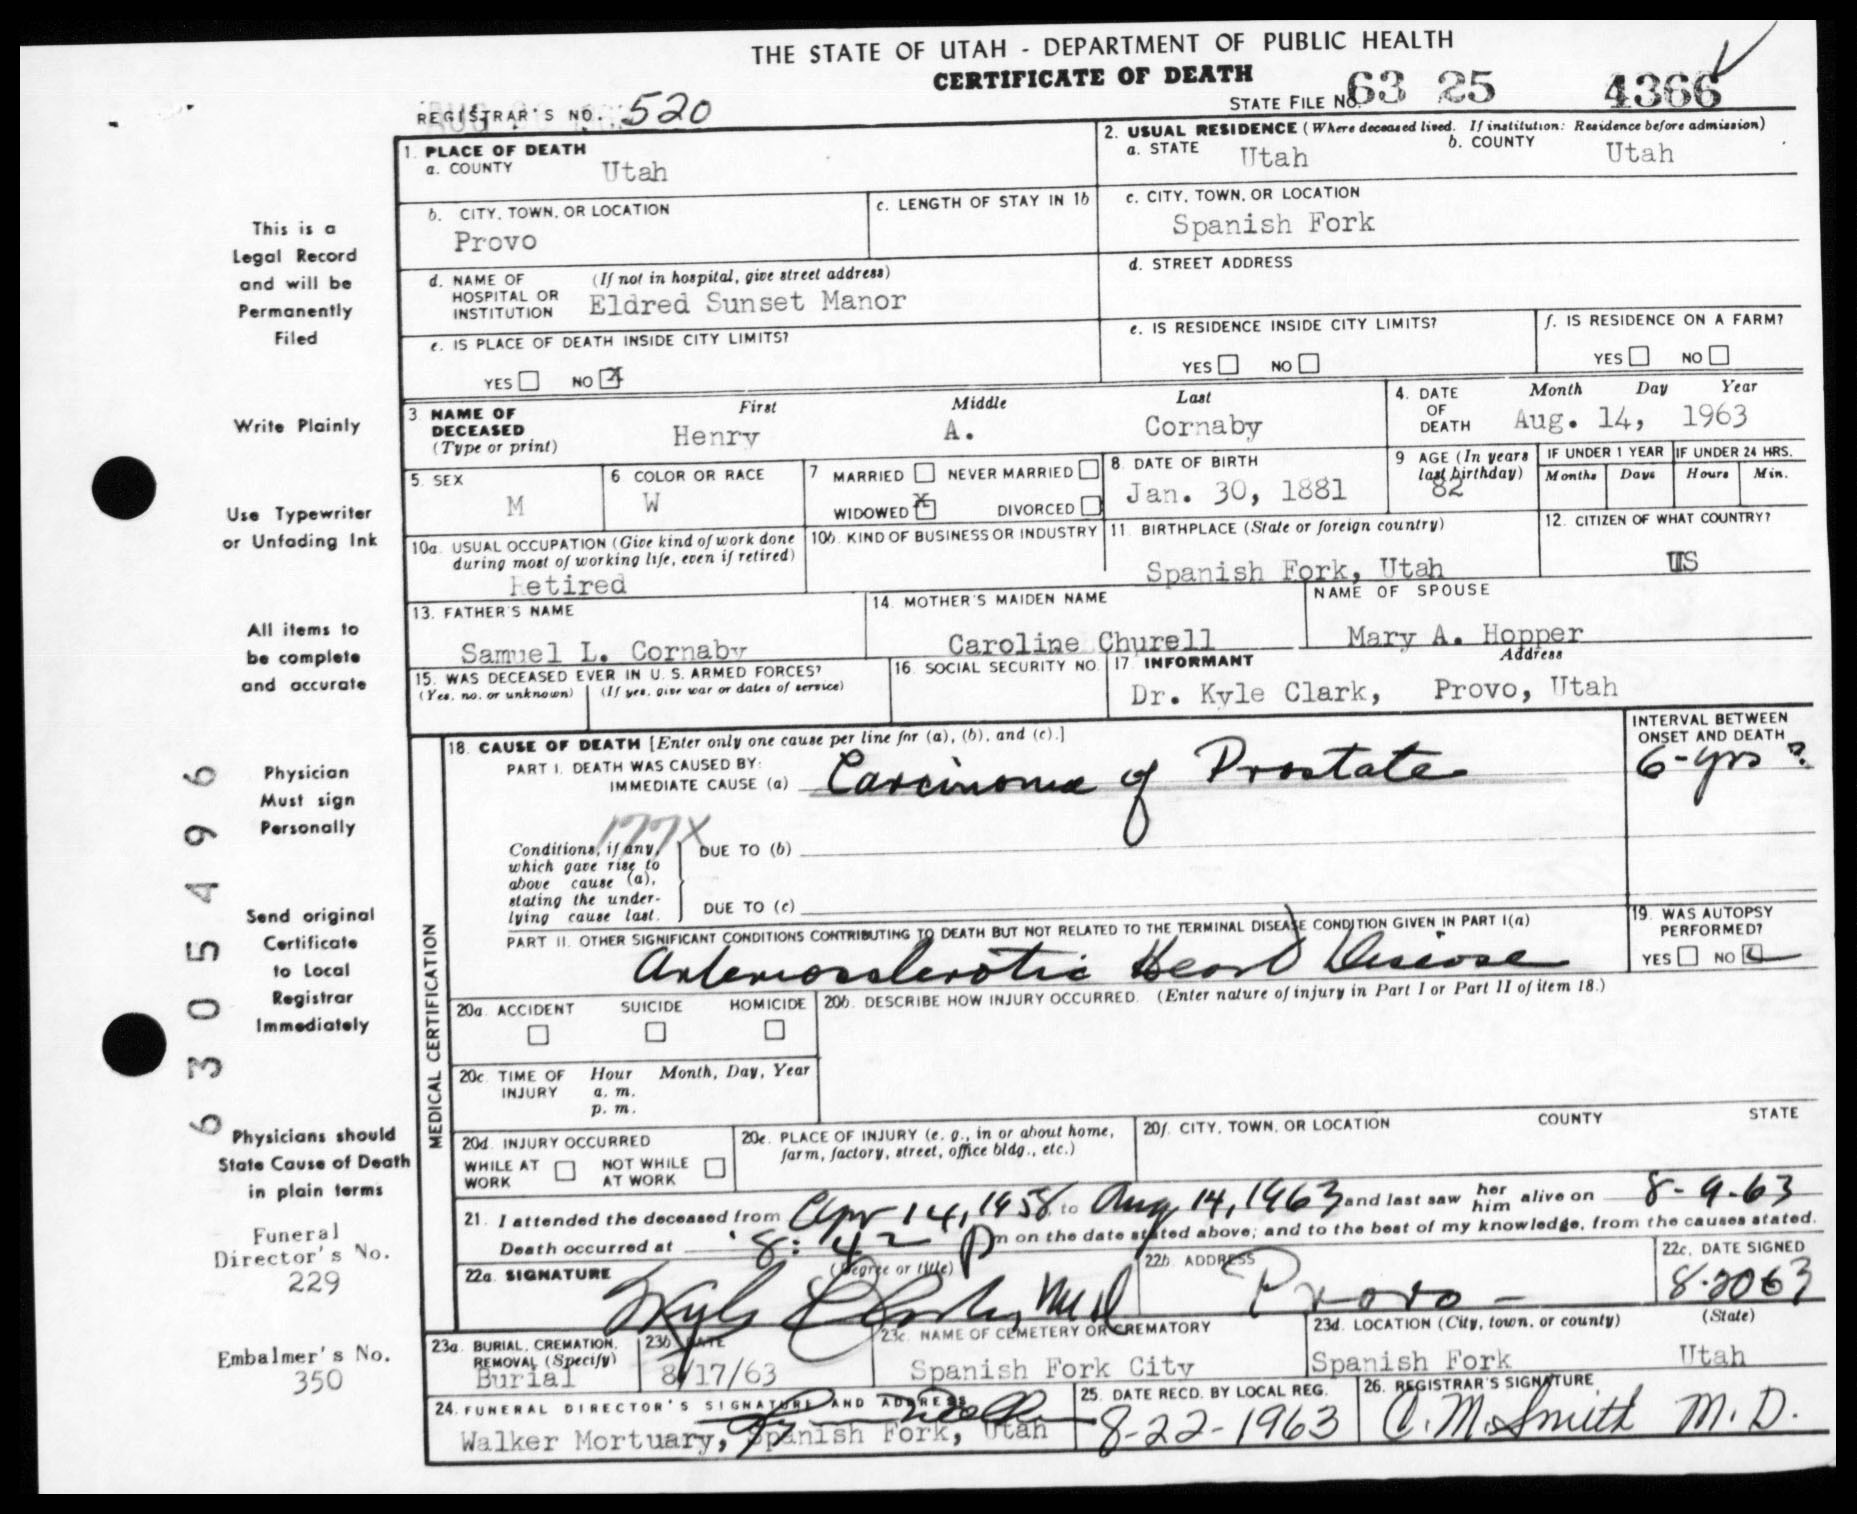 THE STATE OF UTAH - DEPARTMENT OF PUBLIC HEALTH
CERTIFICATE OF DEATH
REGISTRAR'S NO. 520
STATE FILE NO. 63 25 4366
1. PLACE OF DEATH
a. COUNTY Utah
2. USUAL RESIDENCE (Where deceased lived. If institution: Residence before admission)
a. STATE Utah b. COUNTY Utah
b. CITY, TOWN, OR LOCATION
Provo
c. LENGTH OF STAY IN 1b
c. CITY, TOWN, OR LOCATION
Spanish Fork
d. NAME OF HOSPITAL OR INSTITUTION (If not in hospital, give street address)
Eldred Sunset Manor
d. STREET ADDRESS
e. IS PLACE OF DEATH INSIDE CITY LIMITS?
YES NO X
e. IS RESIDENCE INSIDE CITY LIMITS?
YES NO
f. IS RESIDENCE ON A FARM?
YES NO
3. NAME OF DECEASED (Type or print)
First Middle Last
Henry A. Cornaby
4. DATE OF DEATH Month Day Year
Aug. 14, 1963
5. SEX
M
6 COLOR OR RACE
W
7 MARRIED NEVER MARRIED
WIDOWED X DIVORCED
8. DATE OF BIRTH
Jan. 30, 1881
9 AGE (In years last birthday)
82
IF UNDER 1 YEAR IF UNDER 24 HRS.
Months Days Hours Min.
10a. USUAL OCCUPATION (Give kind of work done during most of working life, even if retired)
Retired
10b. KIND OF BUSINESS OR INDUSTRY
11. BIRTHPLACE (State or foreign country)
Spanish Fork, Utah
12. CITIZEN OF WHAT COUNTRY?
US
13. FATHER'S NAME
Samuel L. Cornaby
14. MOTHER'S MAIDEN NAME
Caroline Churell
NAME OF SPOUSE
Mary A. Hopper
15. WAS DECEASED EVER IN U.S. ARMED FORCES?
(Yes, no, or unknown) (If yes, give war or dates of service)
16. SOCIAL SECURITY NO.
17. INFORMANT Address
Dr. Kyle Clark, Provo, Utah
MEDICAL CERTIFICATION
18. CAUSE OF DEATH [Enter only one cause per line for (a), (b), and (c).]
INTERVAL BETWEEN ONSET AND DEATH
PART I. DEATH WAS CAUSED BY:
IMMEDIATE CAUSE (a) Carcinoma of Prostate 6-yrs?
177X
Conditions, if any, which gave rise to above cause (a), stating the underlying cause last.
DUE TO (b)
DUE TO (c)
PART II. OTHER SIGNIFICANT CONDITIONS CONTRIBUTING TO DEATH BUT NOT RELATED TO THE TERMINAL DISEASE CONDITION GIVEN IN PART I(a)
Arteriosclerotic Heart Disease
19. WAS AUTOPSY PERFORMED?
YES NO
20a. ACCIDENT SUICIDE HOMICIDE
20b. DESCRIBE HOW INJURY OCCURRED. (Enter nature of injury in Part I or Part II of item 18.)
20c. TIME OF INJURY Hour Month, Day, Year
a. m.
p. m.
20d. INJURY OCCURRED
WHILE AT WORK NOT WHILE AT WORK
20e. PLACE OF INJURY (e. g., in or about home, farm, factory, street, office bldg., etc.)
20f. CITY, TOWN, OR LOCATION COUNTY STATE
21. I attended the deceased from Apr 14, 1958 to Aug 14, 1963 and last saw her him alive on 8-9-63
Death occurred at 8:42 P m on the date stated above; and to the best of my knowledge, from the causes stated.
22a. SIGNATURE (Degree or title)
Kyle Clark, MD
22b. ADDRESS
Provo -
22c. DATE SIGNED
8-2063
23a. BURIAL, CREMATION, REMOVAL (Specify)
Burial
23b. DATE
8/17/63
23c. NAME OF CEMETERY OR CREMATORY
Spanish Fork City
23d. LOCATION (City, town, or county) (State)
Spanish Fork Utah
24. FUNERAL DIRECTOR'S SIGNATURE AND ADDRESS
Walker Mortuary, Spanish Fork, Utah
25. DATE RECD. BY LOCAL REG.
8-22-1963
26. REGISTRAR'S SIGNATURE
C. M. Smith M.D.
This is a
Legal Record
and will be
Permanently
Filed
Write Plainly
Use Typewriter
or Unfading Ink
All items to
be complete
and accurate
Physician
Must sign
Personally
Send original
Certificate
to Local
Registrar
Immediately
Physicians should
State Cause of Death
in plain terms
Funeral
Director's No.
229
Embalmer's No.
350
6305496